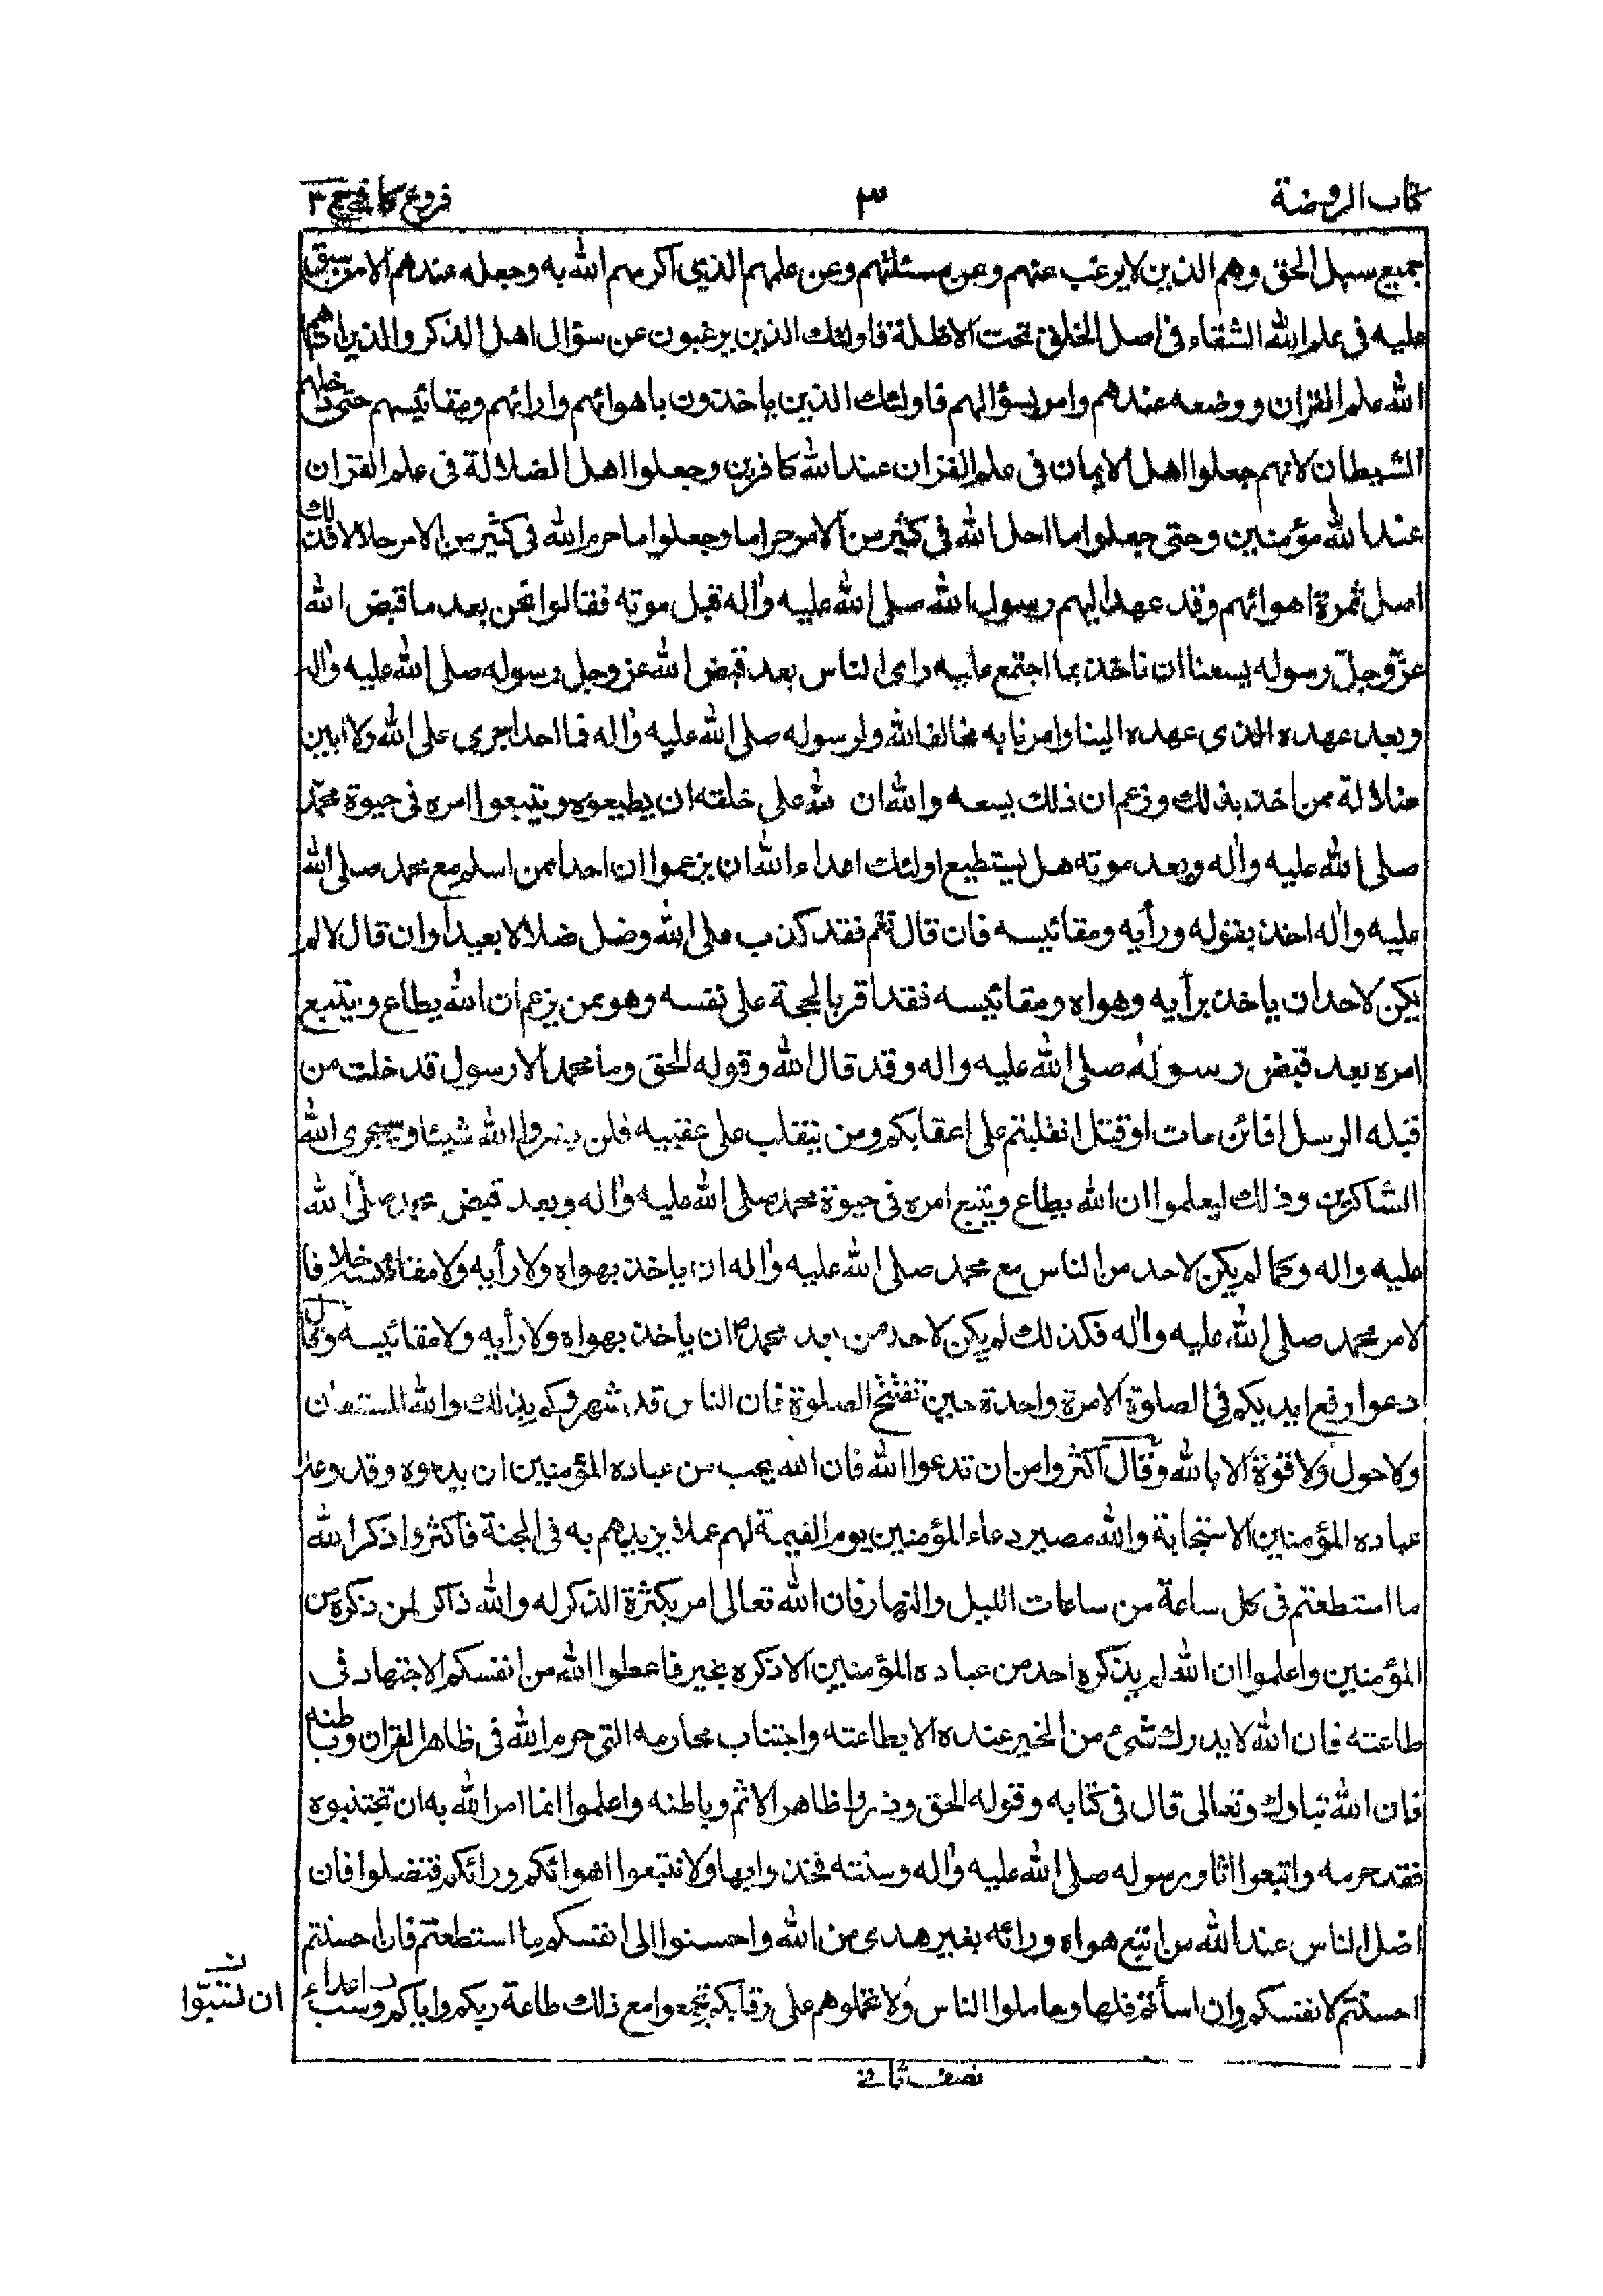 كتاب الروضة
٣
فروع كافي ج ٣
جميع سبل الحق وهم الذين لا يرغب عنهم وعن مسئلتهم وعن علمهم الذي اكرمهم الله به وجعله عندهم الا من سبق
عليه في علم الله الشقاء في اصل الخلق تحت الاظلة فاولئك الذين يرغبون عن سؤال اهل الذكر والذين اتاهم
الله علم القران ووضعه عندهم وامر بسؤالهم فاولئك الذين ياخذون باهوائهم وارائهم ومقائيسهم حتى دخلهم
الشيطان لانهم جعلوا اهل الايمان في علم القران عند الله كافرين وجعلوا اهل الضلالة في علم القران
عند الله مؤمنين وحتى جعلوا ما احل الله في كثير من الامر حراما وجعلوا ما حرم الله في كثير من الامر حلالا فذلك
اصل ثمرة اهوائهم وقد عهد اليهم رسول الله صلى الله عليه واله قبل موته فقالوا نحن بعد ما قبض الله
عزّ وجلّ رسوله يسعنا ان ناخذ بما اجتمع عليه راي الناس بعد قبض الله عز وجل رسوله صلى الله عليه واله
وبعد عهده الذي عهده الينا وامرنا به مخالفا لله ولرسوله صلى الله عليه واله فما احد اجرى على الله ولا ابين
ضلالة ممن اخذ بذلك وزعم ان ذلك يسعه والله ان لله على خلقه ان يطيعوه ويتبعوا امره في حيوة محمّد
صلى الله عليه واله وبعد موته هل يستطيع اولئك اعداء الله ان يزعموا ان احدا ممن اسلم مع محمد صلى الله
عليه واله اخذ بقوله ورأيه ومقائيسه فان قال نعم فقد كذب على الله وضل ضلالا بعيدا وان قال لا لم
يكن لاحد ان ياخذ برأيه وهواه ومقائيسه فقد اقر بالحجة على نفسه وهو ممن يزعم ان الله يطاع ويتبع
امره بعد قبض رسوله صلى الله عليه واله وقد قال الله وقوله الحق وما محمد الا رسول قد خلت من
قبله الرسل افائن مات او قتل انقلبتم على اعقابكم ومن ينقلب على عقبيه فلن يضر الله شيئا وسيجزى الله
الشاكرين وذلك ليعلموا ان الله يطاع ويتبع امره في حيوة محمد صلى الله عليه واله وبعد قبض محمد صلّى الله
عليه واله وكما لم يكن لاحد من الناس مع محمد صلى الله عليه واله ان ياخذ بهواه ولا رأيه ولا مقائيسه خلافا
لامر محمد صلى الله عليه واله فكذلك لم يكن لاحد من بعد محمد ص ان ياخذ بهواه ولا رأيه ولا مقائيسه وقال
دعوا رفع ايديكم في الصلوة الا مرة واحدة حين تفتتح الصلوة فان الناس قد شهروكم بذلك والله المستعان
ولا حول ولا قوة الا بالله وقال اكثروا من ان تدعوا الله فان الله يحب من عباده المؤمنين ان يدعوه وقد وعد
عباده المؤمنين الاستجابة والله مصير دعاء المؤمنين يوم القيمة لهم عملا يزيدهم به في الجنة فاكثروا ذكر الله
ما استطعتم في كل ساعة من ساعات الليل والنهار فان الله تعالى امر بكثرة الذكر له والله ذاكر لمن ذكره من
المؤمنين واعلموا ان الله لم يذكره احد من عباده المؤمنين الا ذكره بخير فاعطوا الله من انفسكم الاجتهاد في
طاعته فان الله لا يدرك شئ من الخير عنده الا بطاعته واجتناب محارمه التي حرم الله في ظاهر القران وباطنه
فان الله تبارك وتعالى قال في كتابه وقوله الحق وذروا ظاهر الاثم وباطنه واعلموا انما امر الله به ان تجتنبوه
فقد حرمه واتبعوا اثار رسوله صلى الله عليه واله وسنته فخذوا بها ولا تتبعوا اهوائكم ورائكم فتضلوا فان
اضل الناس عند الله من اتبع هواه ورائه بغير هدى من الله واحسنوا الى انفسكم ما استطعتم فان احسنتم
احسنتم لانفسكم وان اسأتم فلها وجاملوا الناس ولا تحملوهم على رقابكم تجمعوا مع ذلك طاعة ربكم واياكم وسب اعداء
ان تسبّوا
نصف ثاني